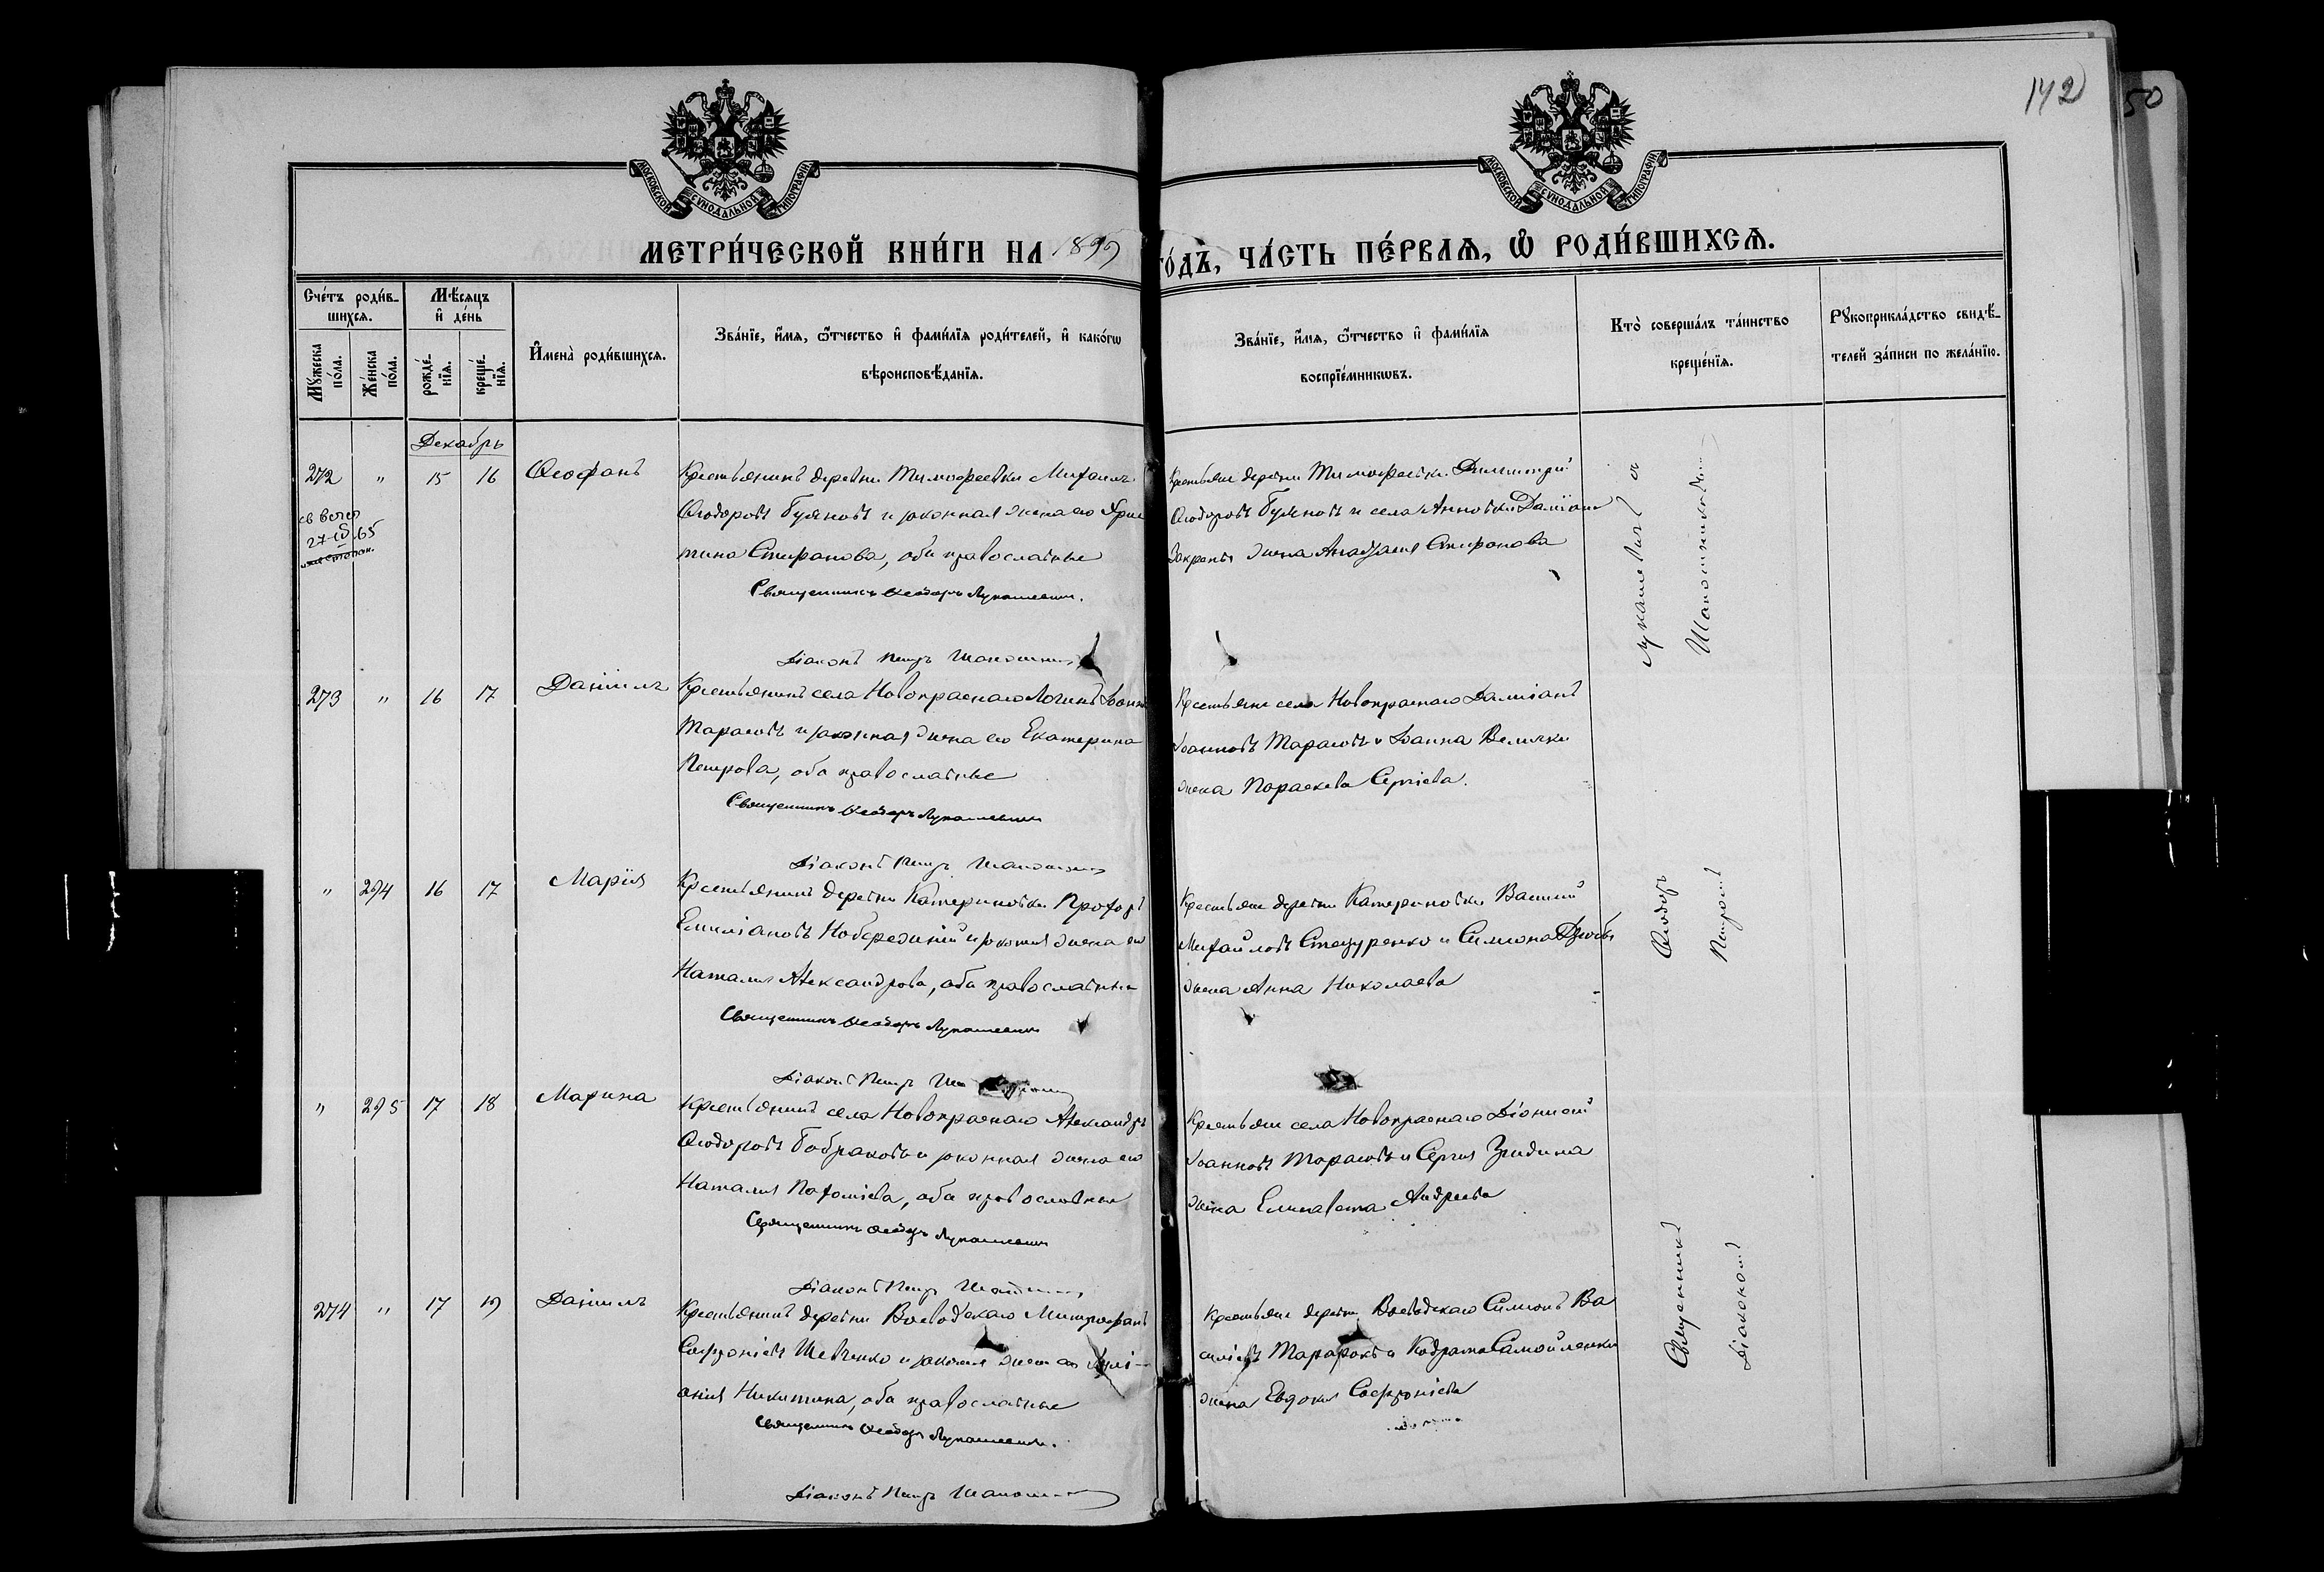 142
50
МОСКОВСКОЙ СУНОДАЛЬНОЙ ТИПОГРАФІИ.
МОСКОВСКОЙ СУНОДАЛЬНОЙ ТИПОГРАФІИ.
МЕТРИ́ЧЕСКОЙ КНИ́ГИ НА 1899
ГО́ДЪ, ЧА́СТЬ ПЕ́РВАЯ, Ѡ РОДИ́ВШИХСЯ.
Сче́тъ роди́в-
шихся.
Мѣ́сяцъ
и҆ де́нь
Мꙋ́жеска по́ла.
Же́нска по́ла.
рожде́-
нїя.
креще́-
нїя.
И҆мена̀ роди́вшихся.
Зва́нїе, и҆́мя, ѻ҆́тчество и҆ фами́лїя роди́телей, и҆ како́гѡ
вѣроисповѣ́данїя.
Зва́нїе, и҆́мя, ѻ҆́тчество и҆ фами́лїя
воспрїе́мникѡвъ.
Кто̀ соверша́лъ та́инство
креще́нїя.
Рꙋкоприкла́дство свидѣ́-
телей за́писи по жела́нїю.
Декабрь
272 " 15 16 Ѳеофанъ
Крестьянинъ деревни Тимофеевки Михаилъ
Ѳеодоровъ Буяновъ и законная жена его Хрис
тина Стефанова, оба православные
Священникъ Ѳеодоръ Лукашевичъ.
Діаконъ Петръ
27 IV 65
Крестьяне деревни Тимофеевки Димитрій
Ѳеодоровъ Буяновъ и села Анновки Даміана
жена Агафія Стефанова
273 " 16 17 Даніилъ
Крестьянинъ села Новокраснаго Логинъ Іоанн
Тарасовъ и законная жена его Екатерина
Петрова, оба православные
Священникъ Ѳеодоръ Лукашевичъ
Діаконъ Петръ
Крестьяне села Новокраснаго Даміанъ
Іоанновъ Тарасовъ и Іоанна Величко
жена Параскева Сергіева.
" 294 16 17 Марія
Крестьянинъ деревни Катериновки Прохоръ
Емиліановъ и законная жена его
Наталія Александрова, оба православные
Священникъ Ѳеодоръ Лукашевичъ
Діаконъ Петръ
Крестьяне деревни Катериновки Василій
Михайловъ Стецуренко и Симеона
жена Анна Николаева
" 295 17 18 Марина
Крестьянинъ села Новокраснаго Александръ
Ѳеодоровъ Бобраковъ и законная жена его
Наталія Пахоміева, оба православные
Священникъ Ѳеодоръ Лукашевичъ
Діаконъ Петръ
Крестьяне села Новокраснаго Діонисій
Іоанновъ Тарасовъ и Сергія
жена Елисавета Андреева
274 " 17 19 Даніилъ
Крестьянинъ деревни Воеводскаго Митрофанъ
Софроніевъ Шевченко и законная жена его Іулі-
анія Никитина, оба православные
Священникъ Ѳеодоръ Лукашевичъ.
Діаконъ Петръ
Крестьяне деревни Воеводскаго Симеонъ Ва
силіевъ и Кодрата Самойленки
жена Евдокія Софроніева
Священникъ Ѳеодоръ Лукашевичъ и
Діакономъ Петромъ